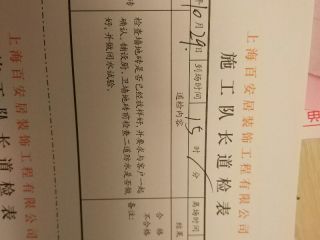 上海百安居装饰工程有限公司
施工队长道检表
10月29日 到场时间 15时 分 离场时间
道检内容 结果
检查墙地砖是否已经放样好,并要求与客户一起
确认。铺设厨、卫墙地砖前检查二道防水是否做
好,并做闭水试验。
合格
不合格
备注:
上海百安居装饰工程有限公司
施工队长道检表